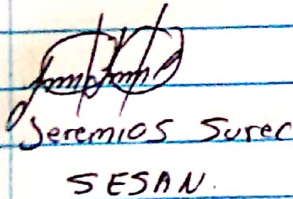 Jeremios Surec
SESAN.